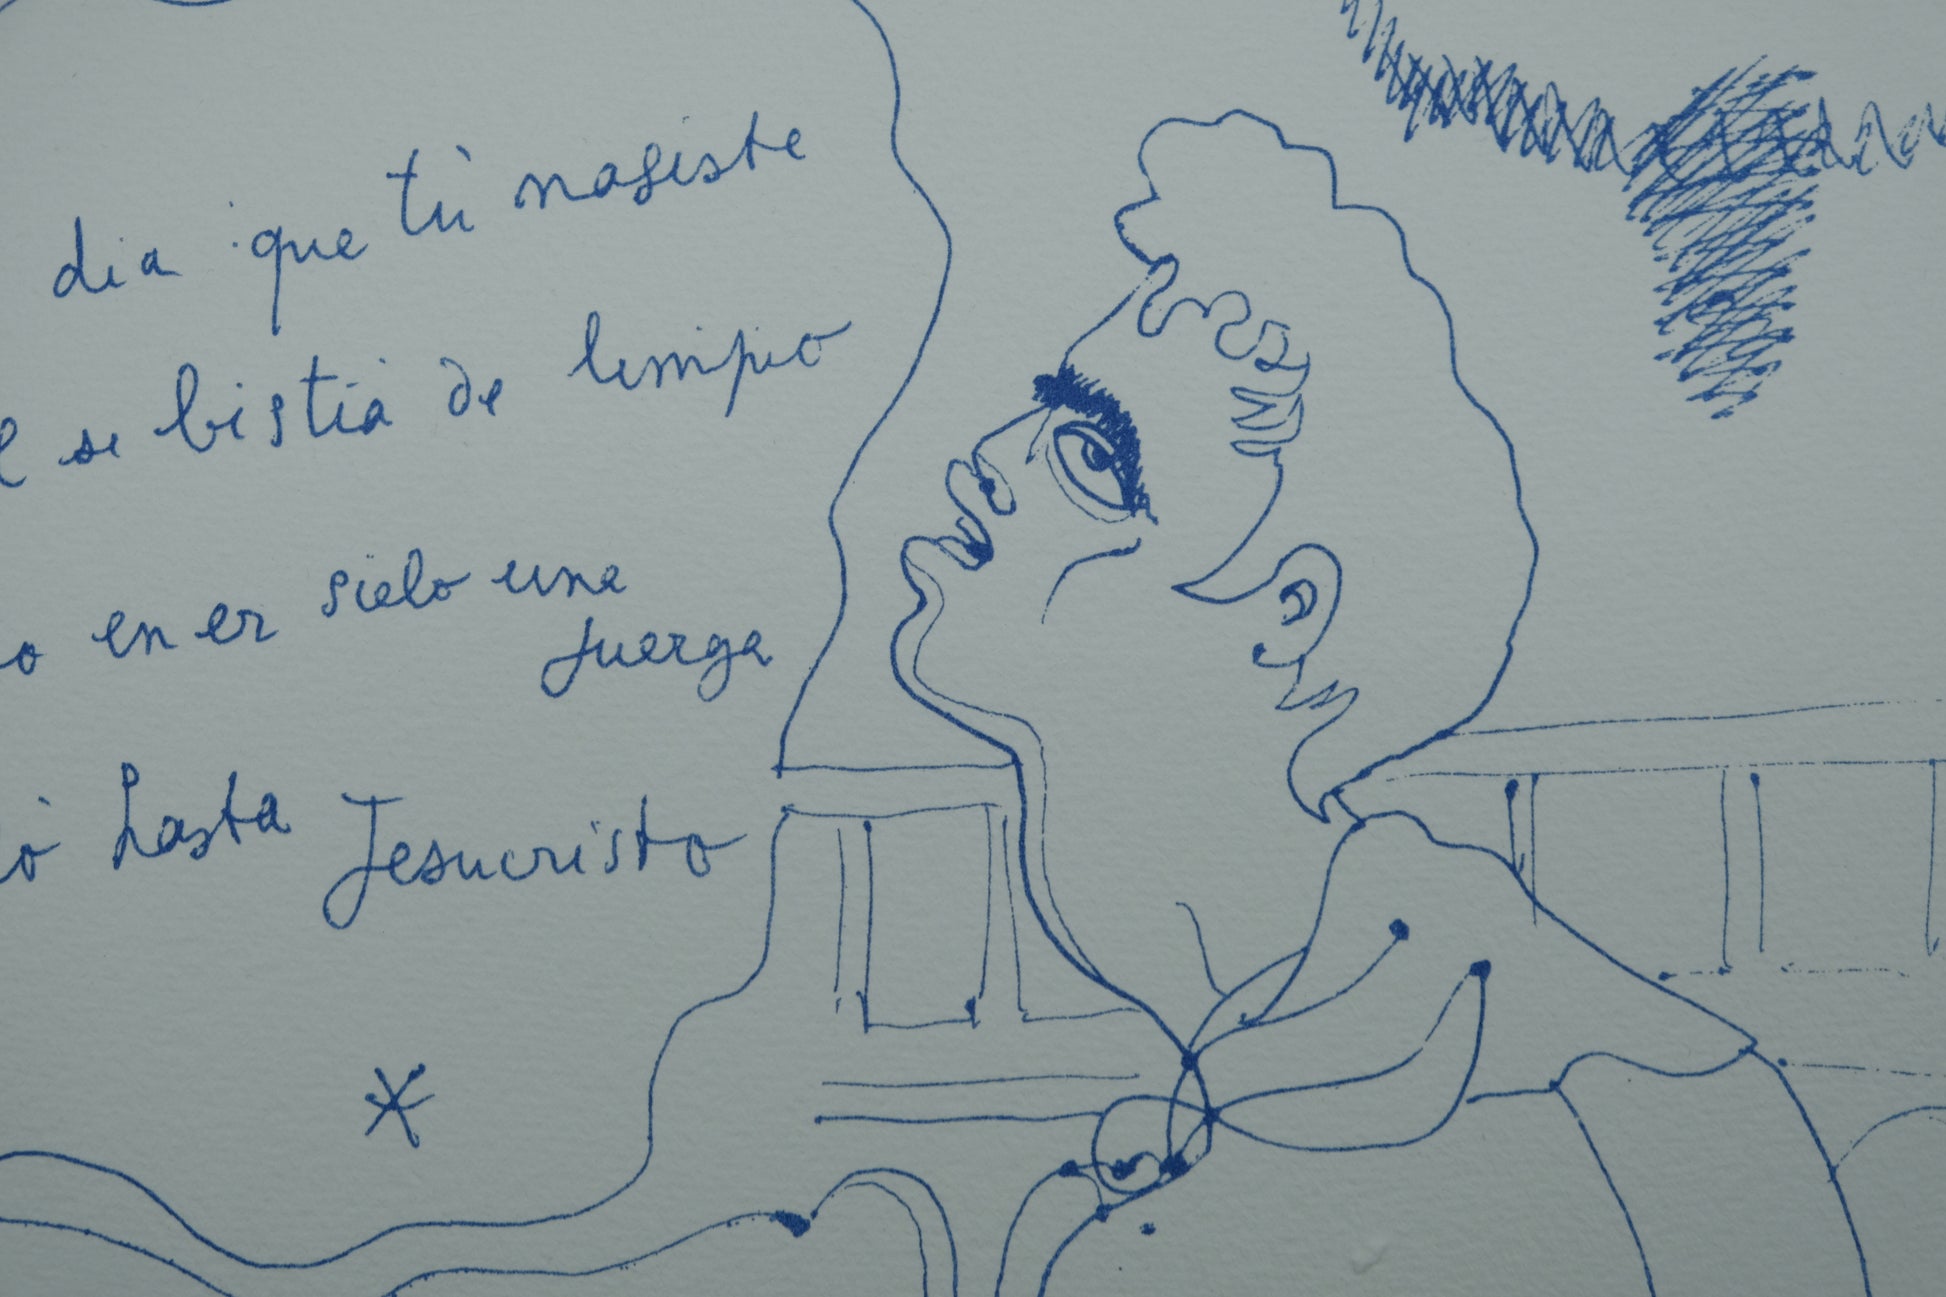 dia que tù nasiste
se bistiá de limpio
en er sielo una
juerga
hasta Jesucristo